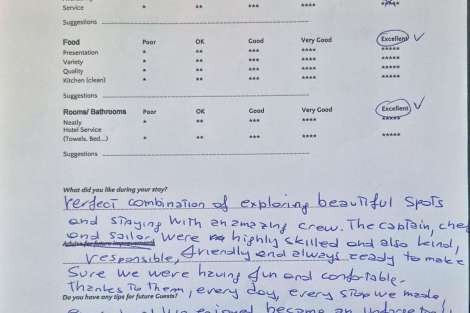 Service * ** *** **** *****
Suggestions
Food Poor OK Good Very Good Excellent ✓
Presentation * ** *** **** *****
Variety * ** *** **** *****
Quality * ** *** **** *****
Kitchen (clean) * ** *** **** *****
Suggestions
Rooms/ Bathrooms Poor OK Good Very Good Excellent ✓
Neatly * ** *** **** *****
Hotel Service
(Towels, Bed...) * ** *** **** *****
Suggestions
What did you like during your stay?
Perfect combination of exploring beautiful spots
and staying with an amazing crew. The captain, chef
and sailor, were highly skilled and also kind,
Advise for future improvement
responsible, friendly and always ready to make
Sure we were having fun and comfortable.
Thanks to them, every day, every stop we made,
Do you have any tips for future Guests?
enjoyed became an